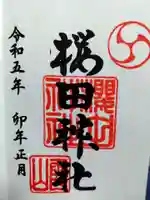 桜田神社
令和五年 卯年正月